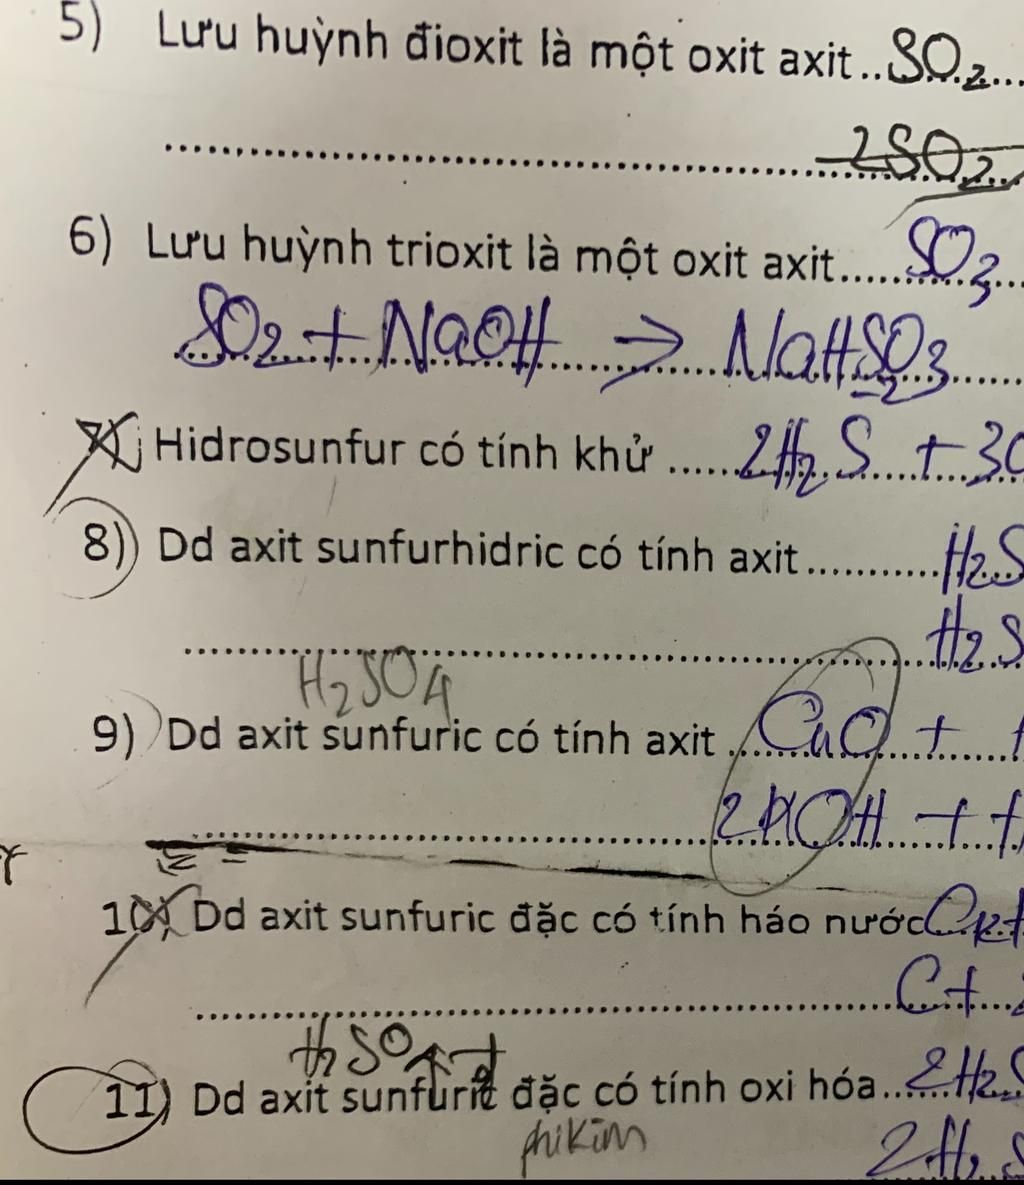 5) Lưu huỳnh đioxit là một oxit axit..SO₂....
2SO₂
6) Lưu huỳnh trioxit là một oxit axit.....SO₃...
SO₂ + NaOH → NaHSO₃
7) Hidrosunfur có tính khử ......2H₂S + 3O
8) Dd axit sunfurhidric có tính axit...........H₂S
H₂S
H₂SO₄
9) Dd axit sunfuric có tính axit ....CuO +
2KOH +
10) Dd axit sunfuric đặc có tính háo nước
C +
H₂SO₄ đ
11) Dd axit sunfuric đặc có tính oxi hóa......2H₂S
phi kim
2H₂S